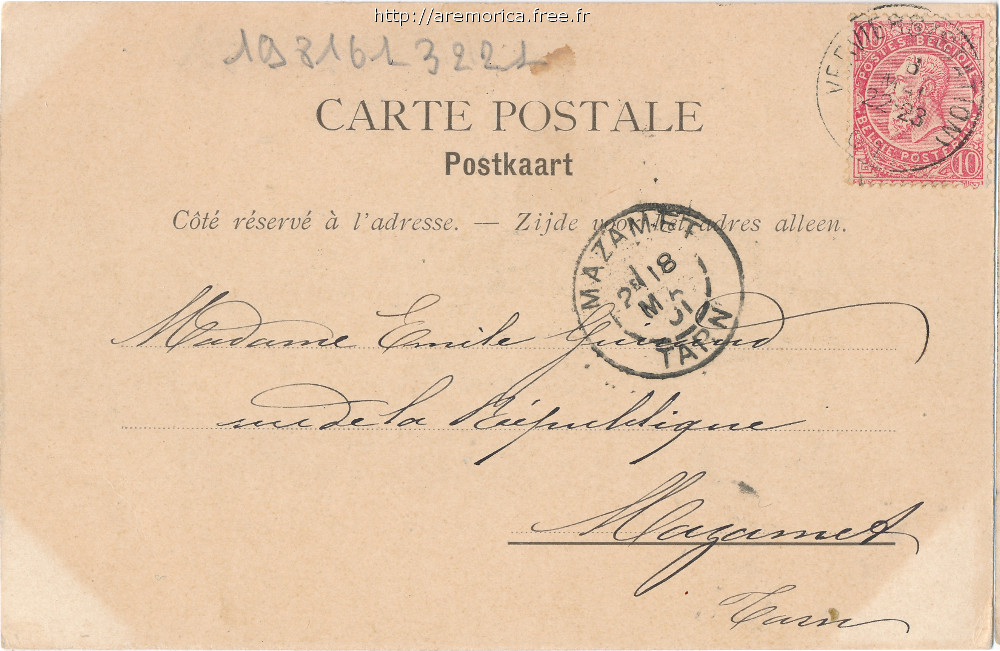 http://aremorica.free.fr
198161 3221
10 10
POSTES BELGIQUE
BELGIE POSTE
10
VERVIERS (STATION)
8
23
CARTE POSTALE
Postkaart
Côté réservé à l'adresse. — Zijde voor het adres alleen.
MAZAMET
2E 18
TARN
Madame Emile
rue de la République
Mazamet
Tarn